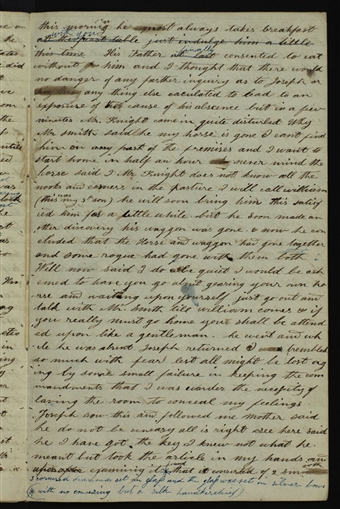 this morning he most always takes breakfast
at the first table just indulge him a little
this time His Father finally consented to eat
without him and I thought that there would
no danger of any farther inquiry as to Joseph or
any thing else calculated to lead to an
exposure of the cause of his absence but in a few
minutes Mr. Knight came in quite disturbed Why
Mr Smith said he my horse is gone I cant find
him on any part of the premises and I want to
start home in half an hour never mind the
horse said I Mr Knight does not know all the
nooks and corners in the pasture I will call william
(this my 4 son) he will soon bring him this satisf
ied him for a little while but he soon made an
other discovery his waggon was gone & now he con
cluded that the Horse and waggon had gone together
and some rogue had gone with them both
Well now said I do be quiet I would be ash
amed to have you go about gearing your own ho
rse and waiting upon yourself just go out and
talk with Mr. Smith till william comes & if
you really must go home you shall be attend
ed upon like a gentleman he went and wh
ile he was absent Joseph returned I trembled
so much with fear lest all might be lost ag
ing by some small failure in keeping the com
mandments that I was under the necessity of
leaving the room to conceal my feelings
Joseph saw this and followed me Mother said
he do not be uneasy all is right see here said
he I have got the key I knew not what he
meant but took the article in my hands and
upon examining it found that it consisted of 2 smooth
3 cornered diamonds set in glass and the glass was set in silver bows
(with no covering but a silk handkerchief)